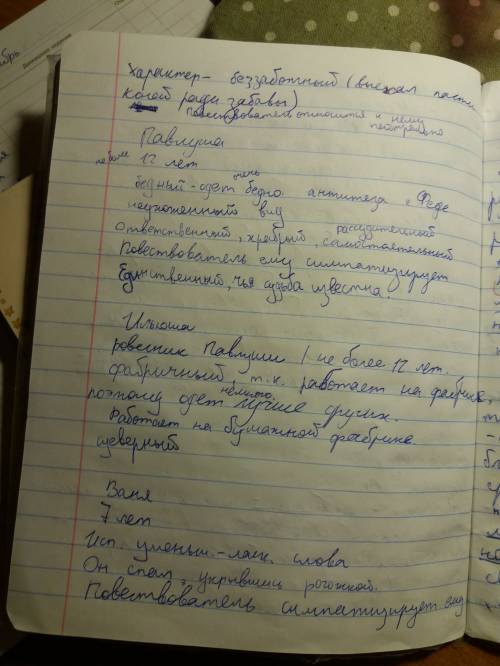 Характер – беззаботный (выехал пасти
коней ради забавы)
Повествователь относится к нему
Павлуша
не более 12 лет
бедный - одет очень бедно. антитеза с Федей
неухоженный вид
ответственный, храбрый, рассудительный, самостоятельный
Повествователь ему симпатизирует
Единственный, чья судьба известна.
Ильюша
ровесник Павлуши / не более 12 лет.
фабричный, т.к. работает на фабрике,
поэтому одет немного лучше других.
Работает на бумажной фабрике
Ваня
7 лет
Исп. уменьш.-ласк. слова
Он спал, укрывшись рогожкой.
Повествователь симпатизирует ему